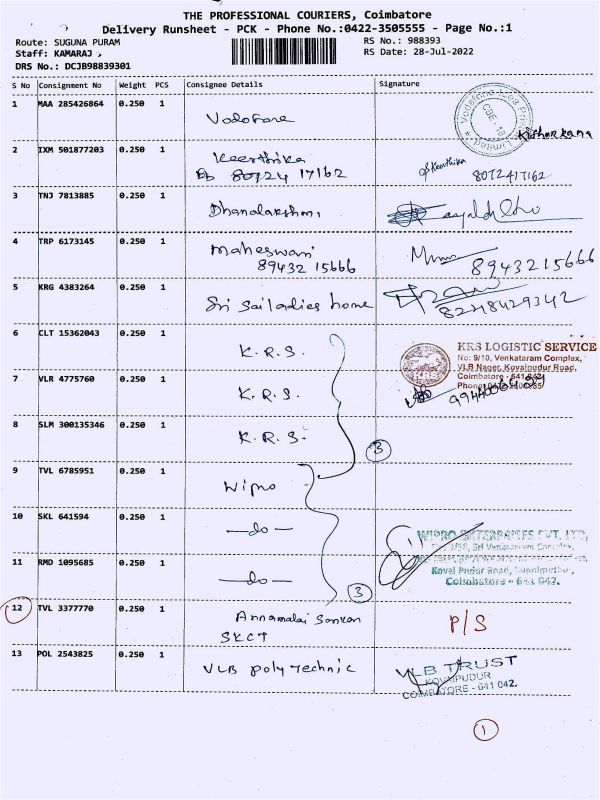 THE PROFESSIONAL COURIERS, Coimbatore
Delivery Runsheet - PCK - Phone No.:0422-3505555 - Page No.:1
Route: SUGUNA PURAM
RS No.: 988393
Staff: KAMARAJ .
RS Date: 28-Jul-2022
DRS No.: DCJB98839301
S No Consignment No Weight PCS Consignee Details Signature
1 MAA 285426864 0.250 1 Vodofone
Kishorkana
2 IXM 501877203 0.250 1 Keerthika Keerthika
80724 17162 8072417162
3 TNJ 7813885 0.250 1 Dhanalakshmi
4 TRP 6173145 0.250 1 Maheswari
89432 15666 8943215666
5 KRG 4383264 0.250 1 Sri Sai ladies home
8248429342
6 CLT 15362043 0.250 1 K.R.S.
KRS LOGISTIC SERVICE
No: 9/10, Venkataram Complex,
VLB Nager, Kovaipudur Road,
Coimbatore - 641 042
7 VLR 4775760 0.250 1 K.R.S.
8 SLM 300135346 0.250 1 K.R.S.
3
9 TVL 6785951 0.250 1 Wipro
10 SKL 641594 0.250 1 —do—
WIPRO ENTERPRISES PVT. LTD,
Coimbatore - 641 042.
11 RMD 1095685 0.250 1 —do—
3
12 TVL 3377770 0.250 1 Annamalai Sankan P/S
SKCT
13 POL 2543825 0.250 1 VLB polytechnic
VLB TRUST
KOVAIPUDUR
COIMBATORE - 641 042.
1